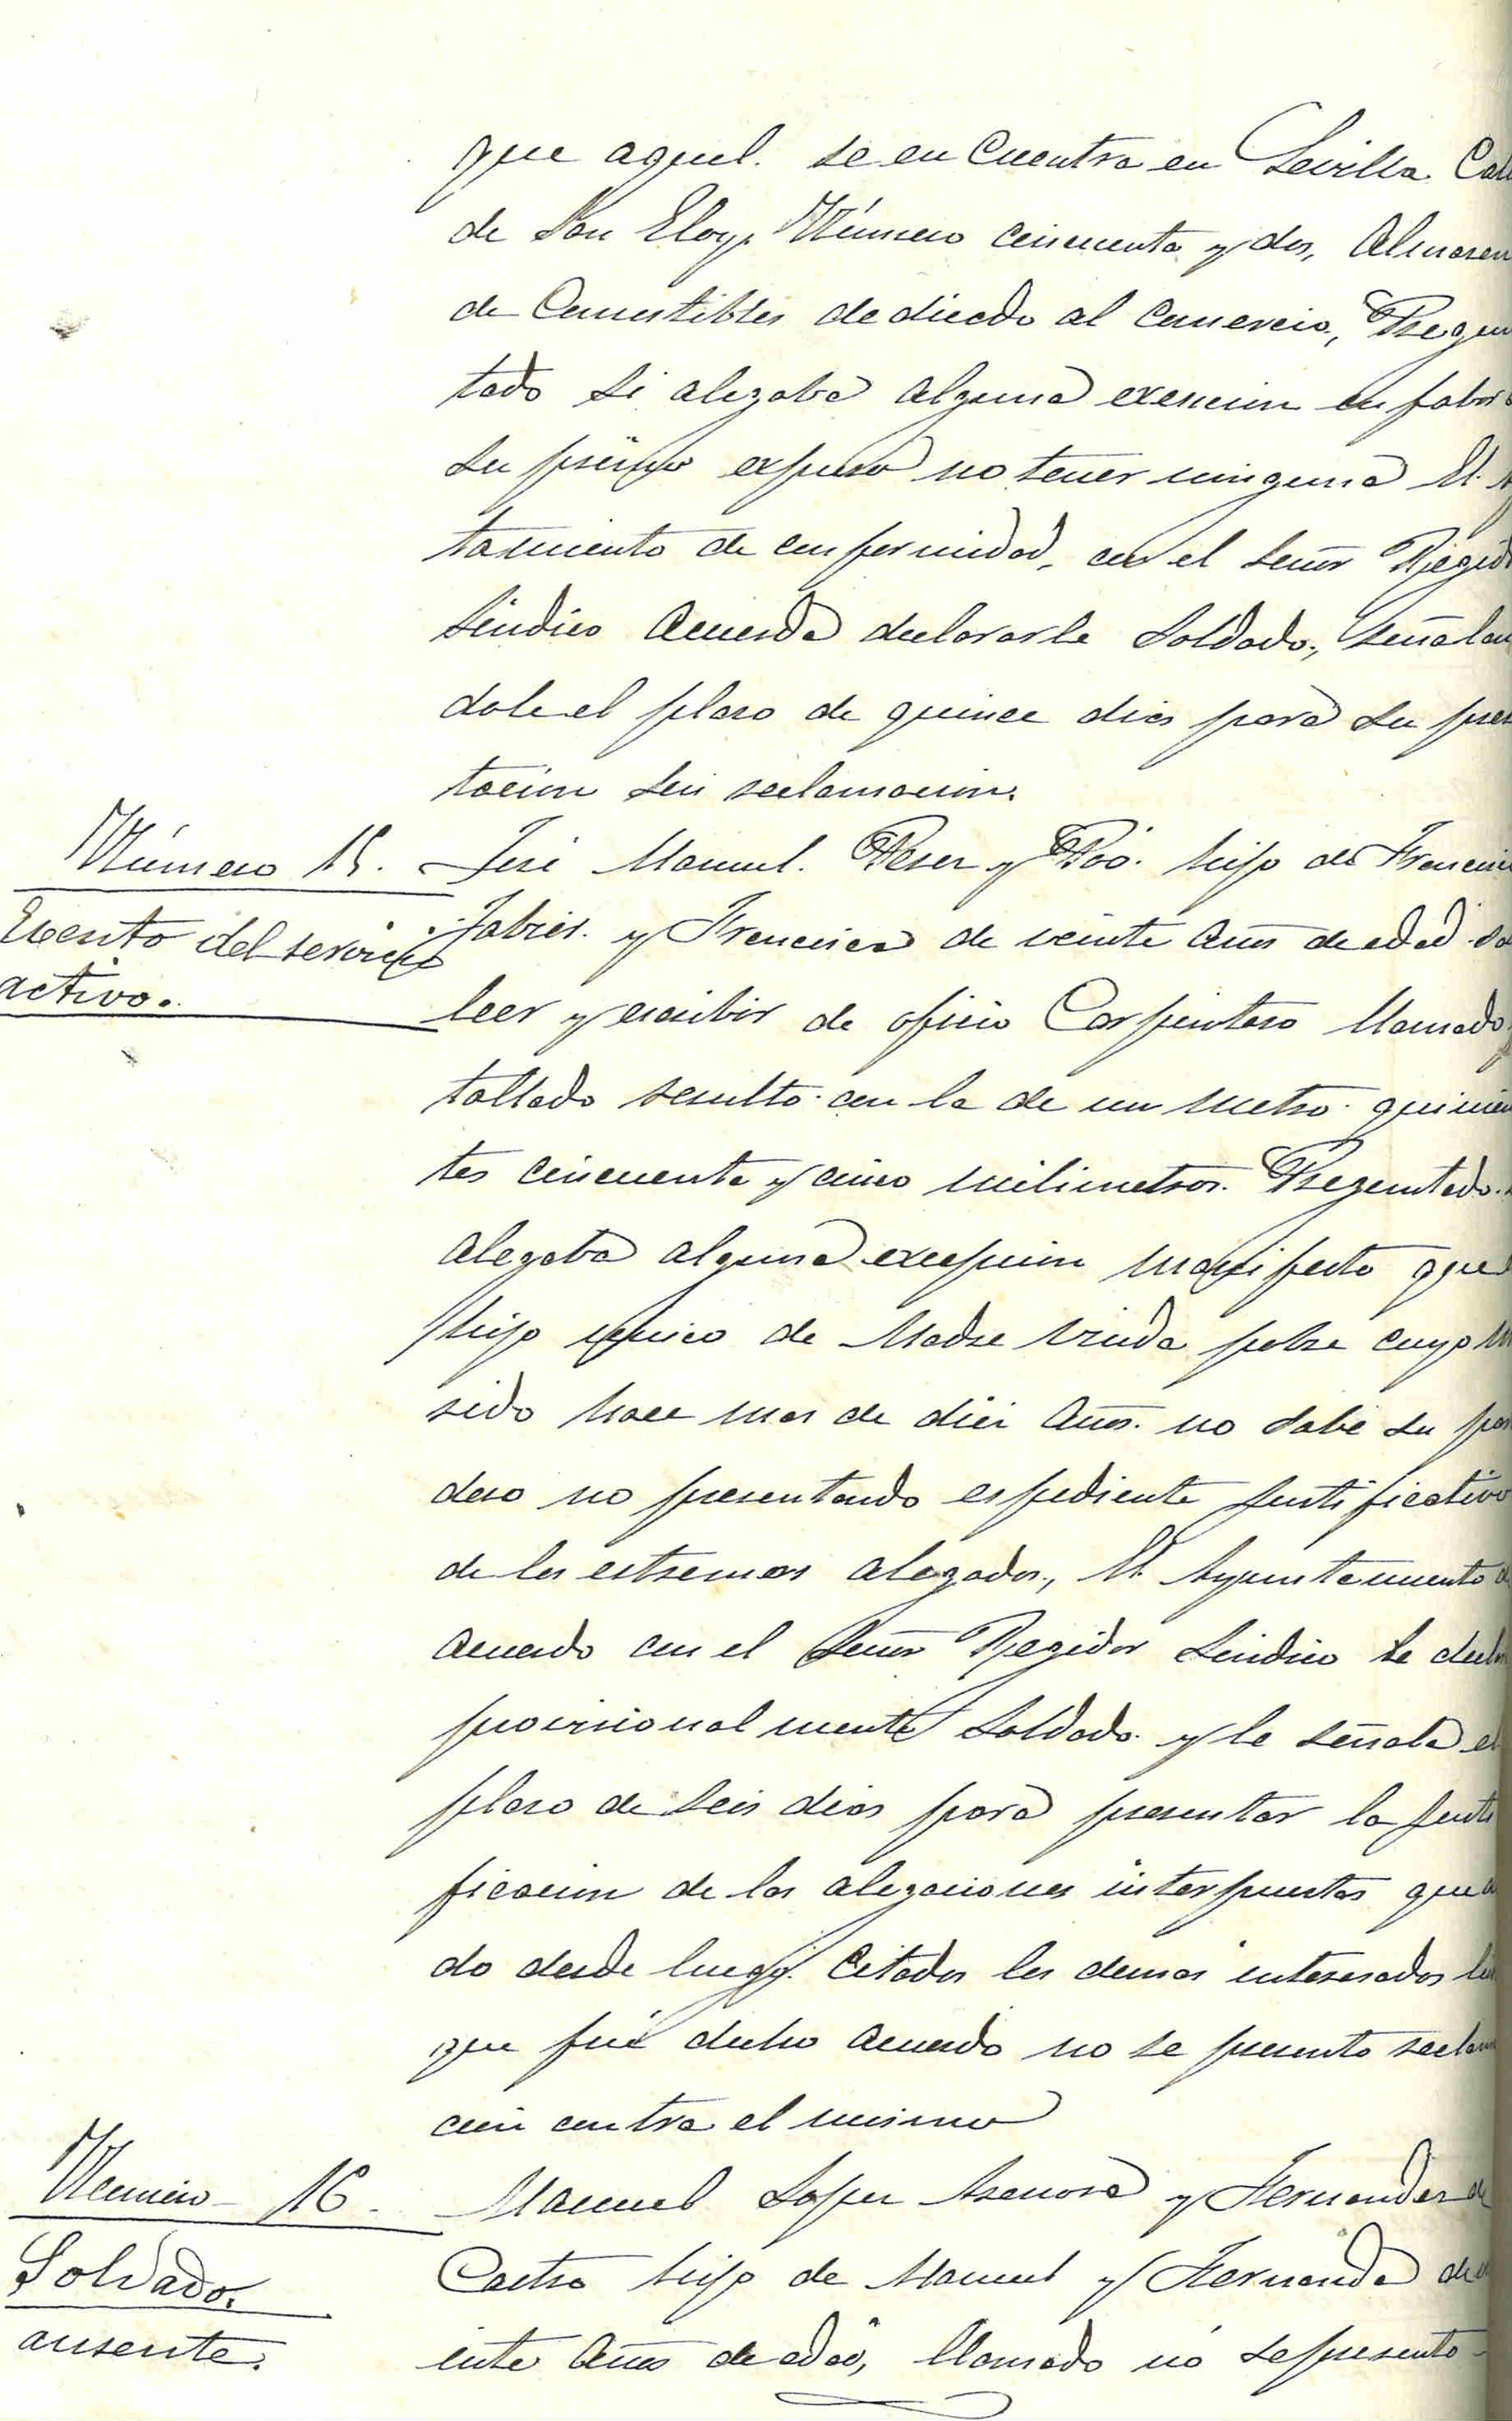 que aquel. se encuentra en Sevilla Call
de San Eloy, Número cincuenta y dos, Almasen
de Comestibles dedicado al Comercio, Pregun
tado si alegaba alguna exencion en fabor
su primo expuso no tener ninguna El. A
tamiento de conformidad, con el señor Regido
Sindico Acuerda declararle Soldado, señalan
dole el plaso de quince dias para su presen
tacion sin reclamacion.
Número 15. José Manuel. Peser y Poó. hijo de Francisco
Exento del servicio Jabier. y Francisca de veinte años de edad sa
activo. leer y escribir de oficio Carpintero llamado y
tallado resulto con la de un metro quinien
tos cincuenta y cinco milimetros. Preguntado. s
alegaba alguna excepcion manifesto que
hijo unico de Madre viuda pobre cuyo m
rido hace mas de diez años. no sabe su para
dero no presentando espediente justificativo
de los estremos alegados, El Ayuntamiento d
acuerdo con el señor Regidor Sindico le decla
provisionalmente Soldado y le señala el
plaso de seis dias para presentar la justi
ficacion de las alegaciones interpuestas queda
do desde luego. Citados los demas interesados lei
que fué dicho acuerdo no se presento reclama
cion contra el mismo
Numero 16. Manuel Loper Asenora y Hernandez de
Soldado. Castro hijo de Manuel y Hernanda de v
ausente. einte años de edad, llamado no se presento